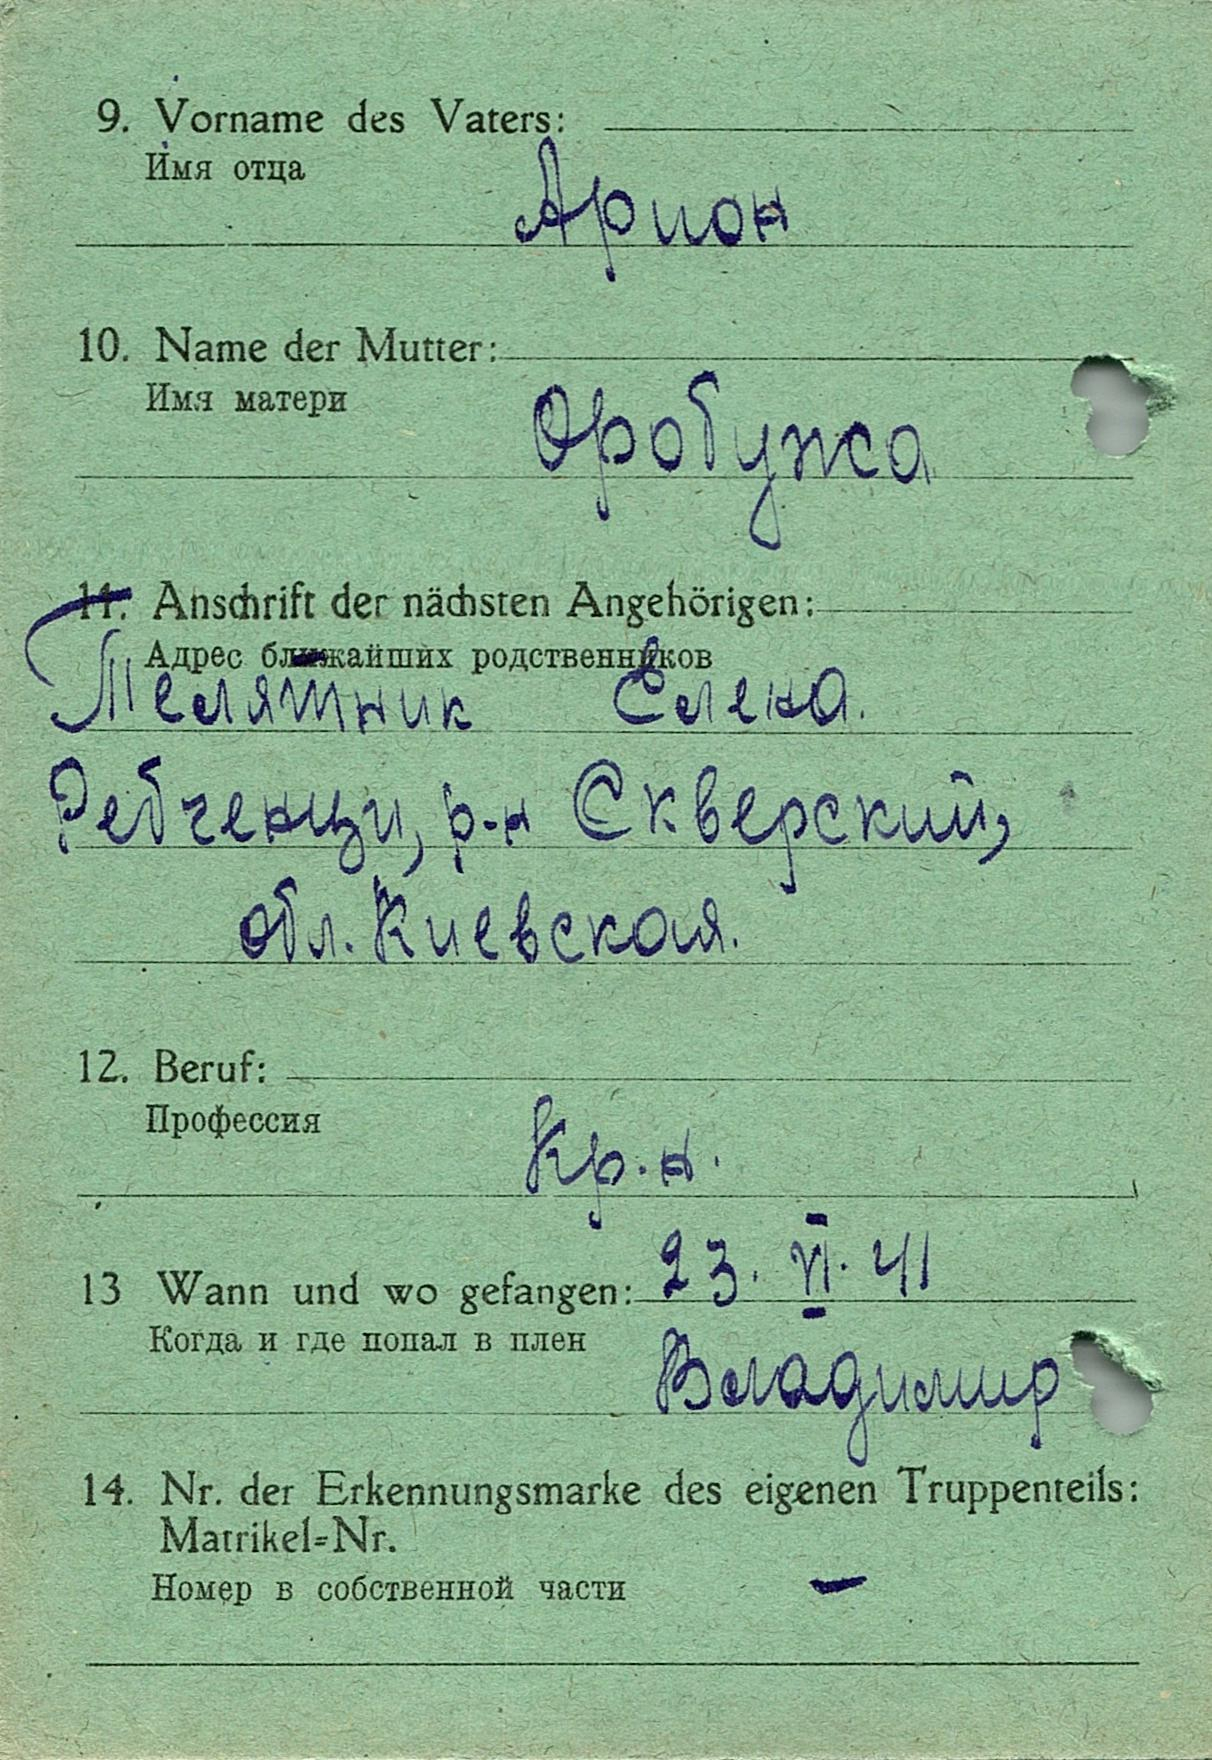 9. Vorname des Vaters:
Имя отца
Арион
10. Name der Mutter:
Имя матери
Оробужа
11. Anschrift der nächsten Angehörigen:
Адрес ближайших родственников
Телятник Елена.
Ребченци, р-н Скверский,
обл. Киевская.
12. Beruf:
Профессия
Кр.н.
13 Wann und wo gefangen: 23. VI. 41
Когда и где попал в плен
Владимир
14. Nr. der Erkennungsmarke des eigenen Truppenteils:
Matrikel=Nr.
Номер в собственной части —